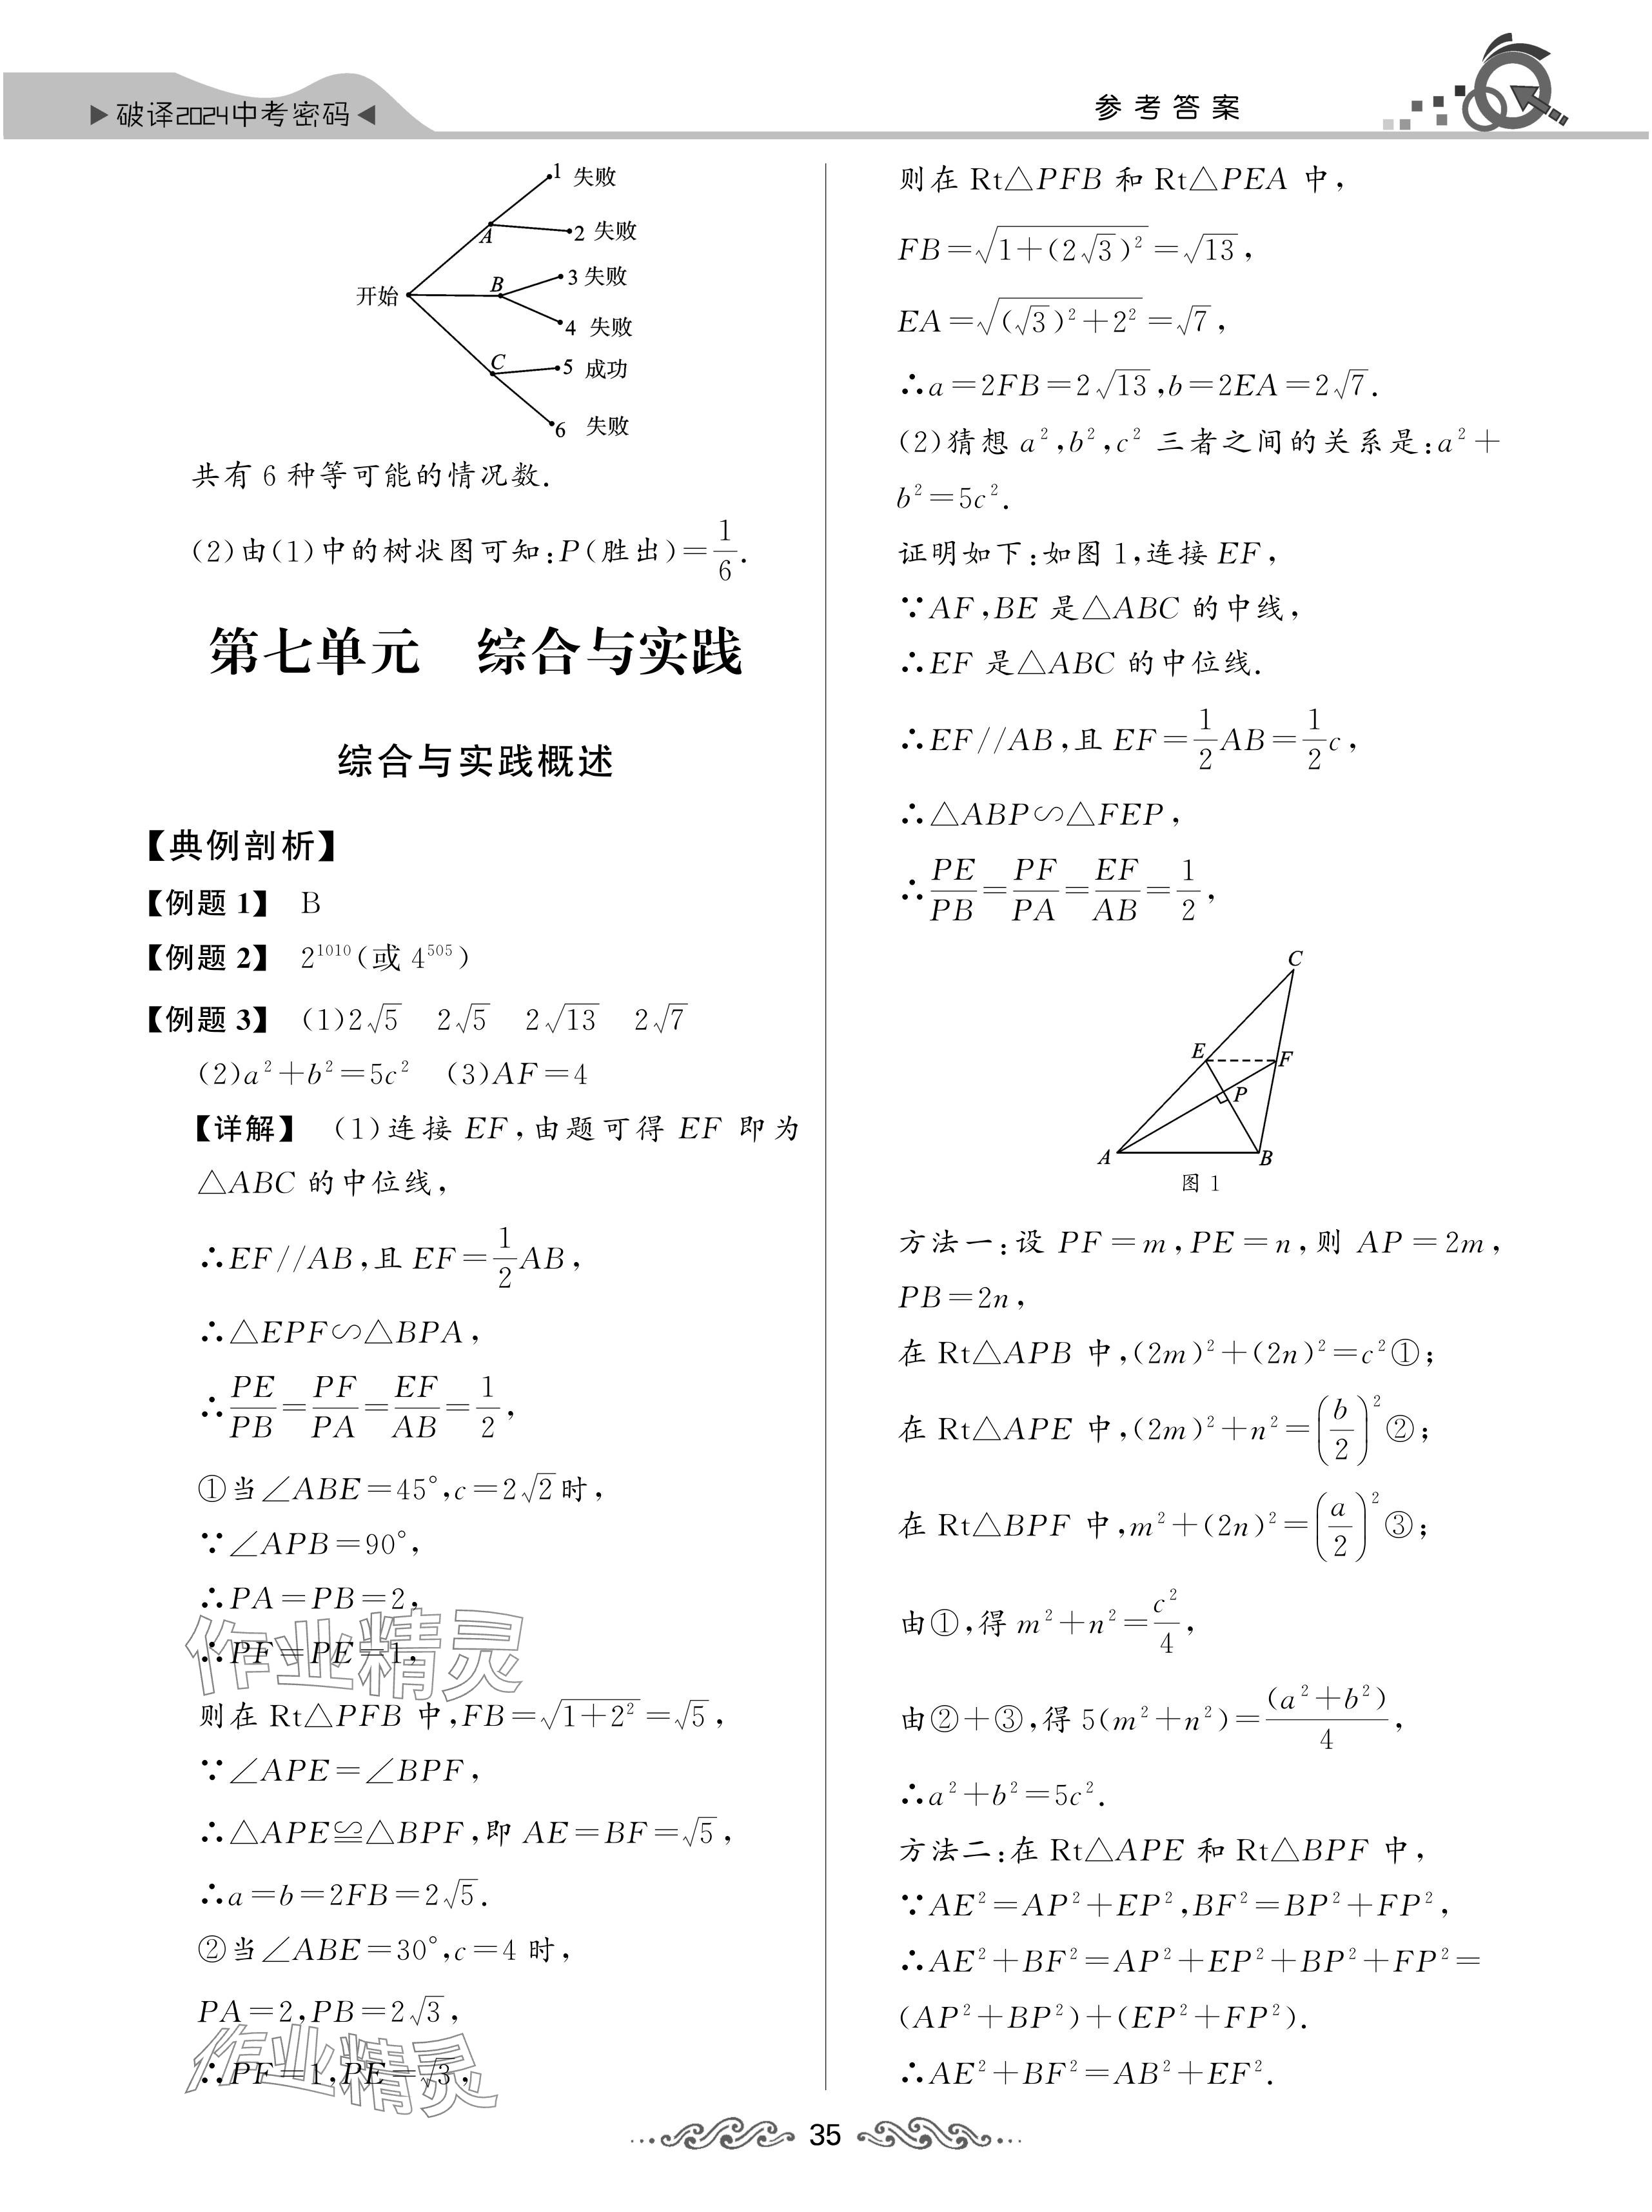 ▶破译2024中考密码◀
参考答案
1 失败
2 失败
A
3 失败
B
开始
4 失败
C
5 成功
6 失败
共有 6 种等可能的情况数.
(2)由(1)中的树状图可知:P(胜出)=1/6.
第七单元 综合与实践
综合与实践概述
【典例剖析】
【例题 1】 B
【例题 2】 2¹⁰¹⁰(或 4⁵⁰⁵)
【例题 3】 (1)2√5 2√5 2√13 2√7
(2)a²+b²=5c² (3)AF=4
【详解】 (1)连接 EF,由题可得 EF 即为
△ABC 的中位线,
∴EF//AB,且 EF=1/2AB,
∴△EPF∽△BPA,
∴PE/PB=PF/PA=EF/AB=1/2,
①当∠ABE=45°,c=2√2时,
∵∠APB=90°,
∴PA=PB=2,
∴PF=PE=1,
则在 Rt△PFB 中,FB=√(1+2²)=√5,
∵∠APE=∠BPF,
∴△APE≌△BPF,即 AE=BF=√5,
∴a=b=2FB=2√5.
②当∠ABE=30°,c=4 时,
PA=2,PB=2√3,
∴PF=1,PE=√3,
则在 Rt△PFB 和 Rt△PEA 中,
FB=√(1+(2√3)²)=√13,
EA=√((√3)²+2²)=√7,
∴a=2FB=2√13,b=2EA=2√7.
(2)猜想 a²,b²,c² 三者之间的关系是:a²+
b²=5c².
证明如下:如图 1,连接 EF,
∵AF,BE 是△ABC 的中线,
∴EF 是△ABC 的中位线.
∴EF//AB,且 EF=1/2AB=1/2c,
∴△ABP∽△FEP,
∴PE/PB=PF/PA=EF/AB=1/2,
C
E
F
P
A
B
图 1
方法一:设 PF=m,PE=n,则 AP=2m,
PB=2n,
在 Rt△APB 中,(2m)²+(2n)²=c²①;
在 Rt△APE 中,(2m)²+n²=(b/2)²②;
在 Rt△BPF 中,m²+(2n)²=(a/2)²③;
由①,得 m²+n²=c²/4,
由②+③,得 5(m²+n²)=(a²+b²)/4,
∴a²+b²=5c².
方法二:在 Rt△APE 和 Rt△BPF 中,
∵AE²=AP²+EP²,BF²=BP²+FP²,
∴AE²+BF²=AP²+EP²+BP²+FP²=
(AP²+BP²)+(EP²+FP²).
∴AE²+BF²=AB²+EF².
作业精灵
作业精灵
35